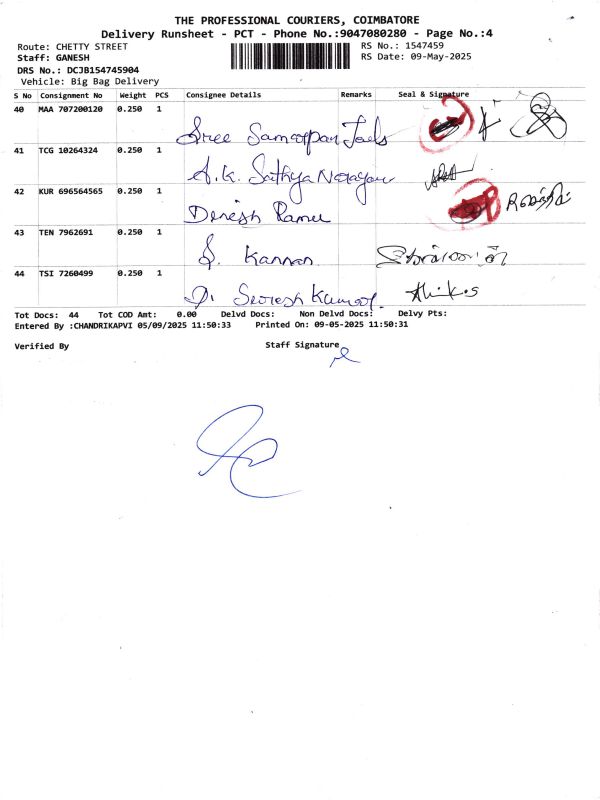 THE PROFESSIONAL COURIERS, COIMBATORE
Delivery Runsheet - PCT - Phone No.:9047080280 - Page No.:4
Route: CHETTY STREET RS No.: 1547459
Staff: GANESH RS Date: 09-May-2025
DRS No.: DCJB154745904
Vehicle: Big Bag Delivery
S No Consignment No Weight PCS Consignee Details Remarks Seal & Signature
40 MAA 707200120 0.250 1
Sree
41 TCG 10264324 0.250 1
A.K. Sathya Narayan
42 KUR 696564565 0.250 1
Dinesh Ramu
43 TEN 7962691 0.250 1
S. Kannan
44 TSI 7260499 0.250 1
D. Suresh Kumar
Tot Docs: 44 Tot COD Amt: 0.00 Delvd Docs: Non Delvd Docs: Delvy Pts:
Entered By :CHANDRIKAPVI 05/09/2025 11:50:33 Printed On: 09-05-2025 11:50:31
Verified By Staff Signature